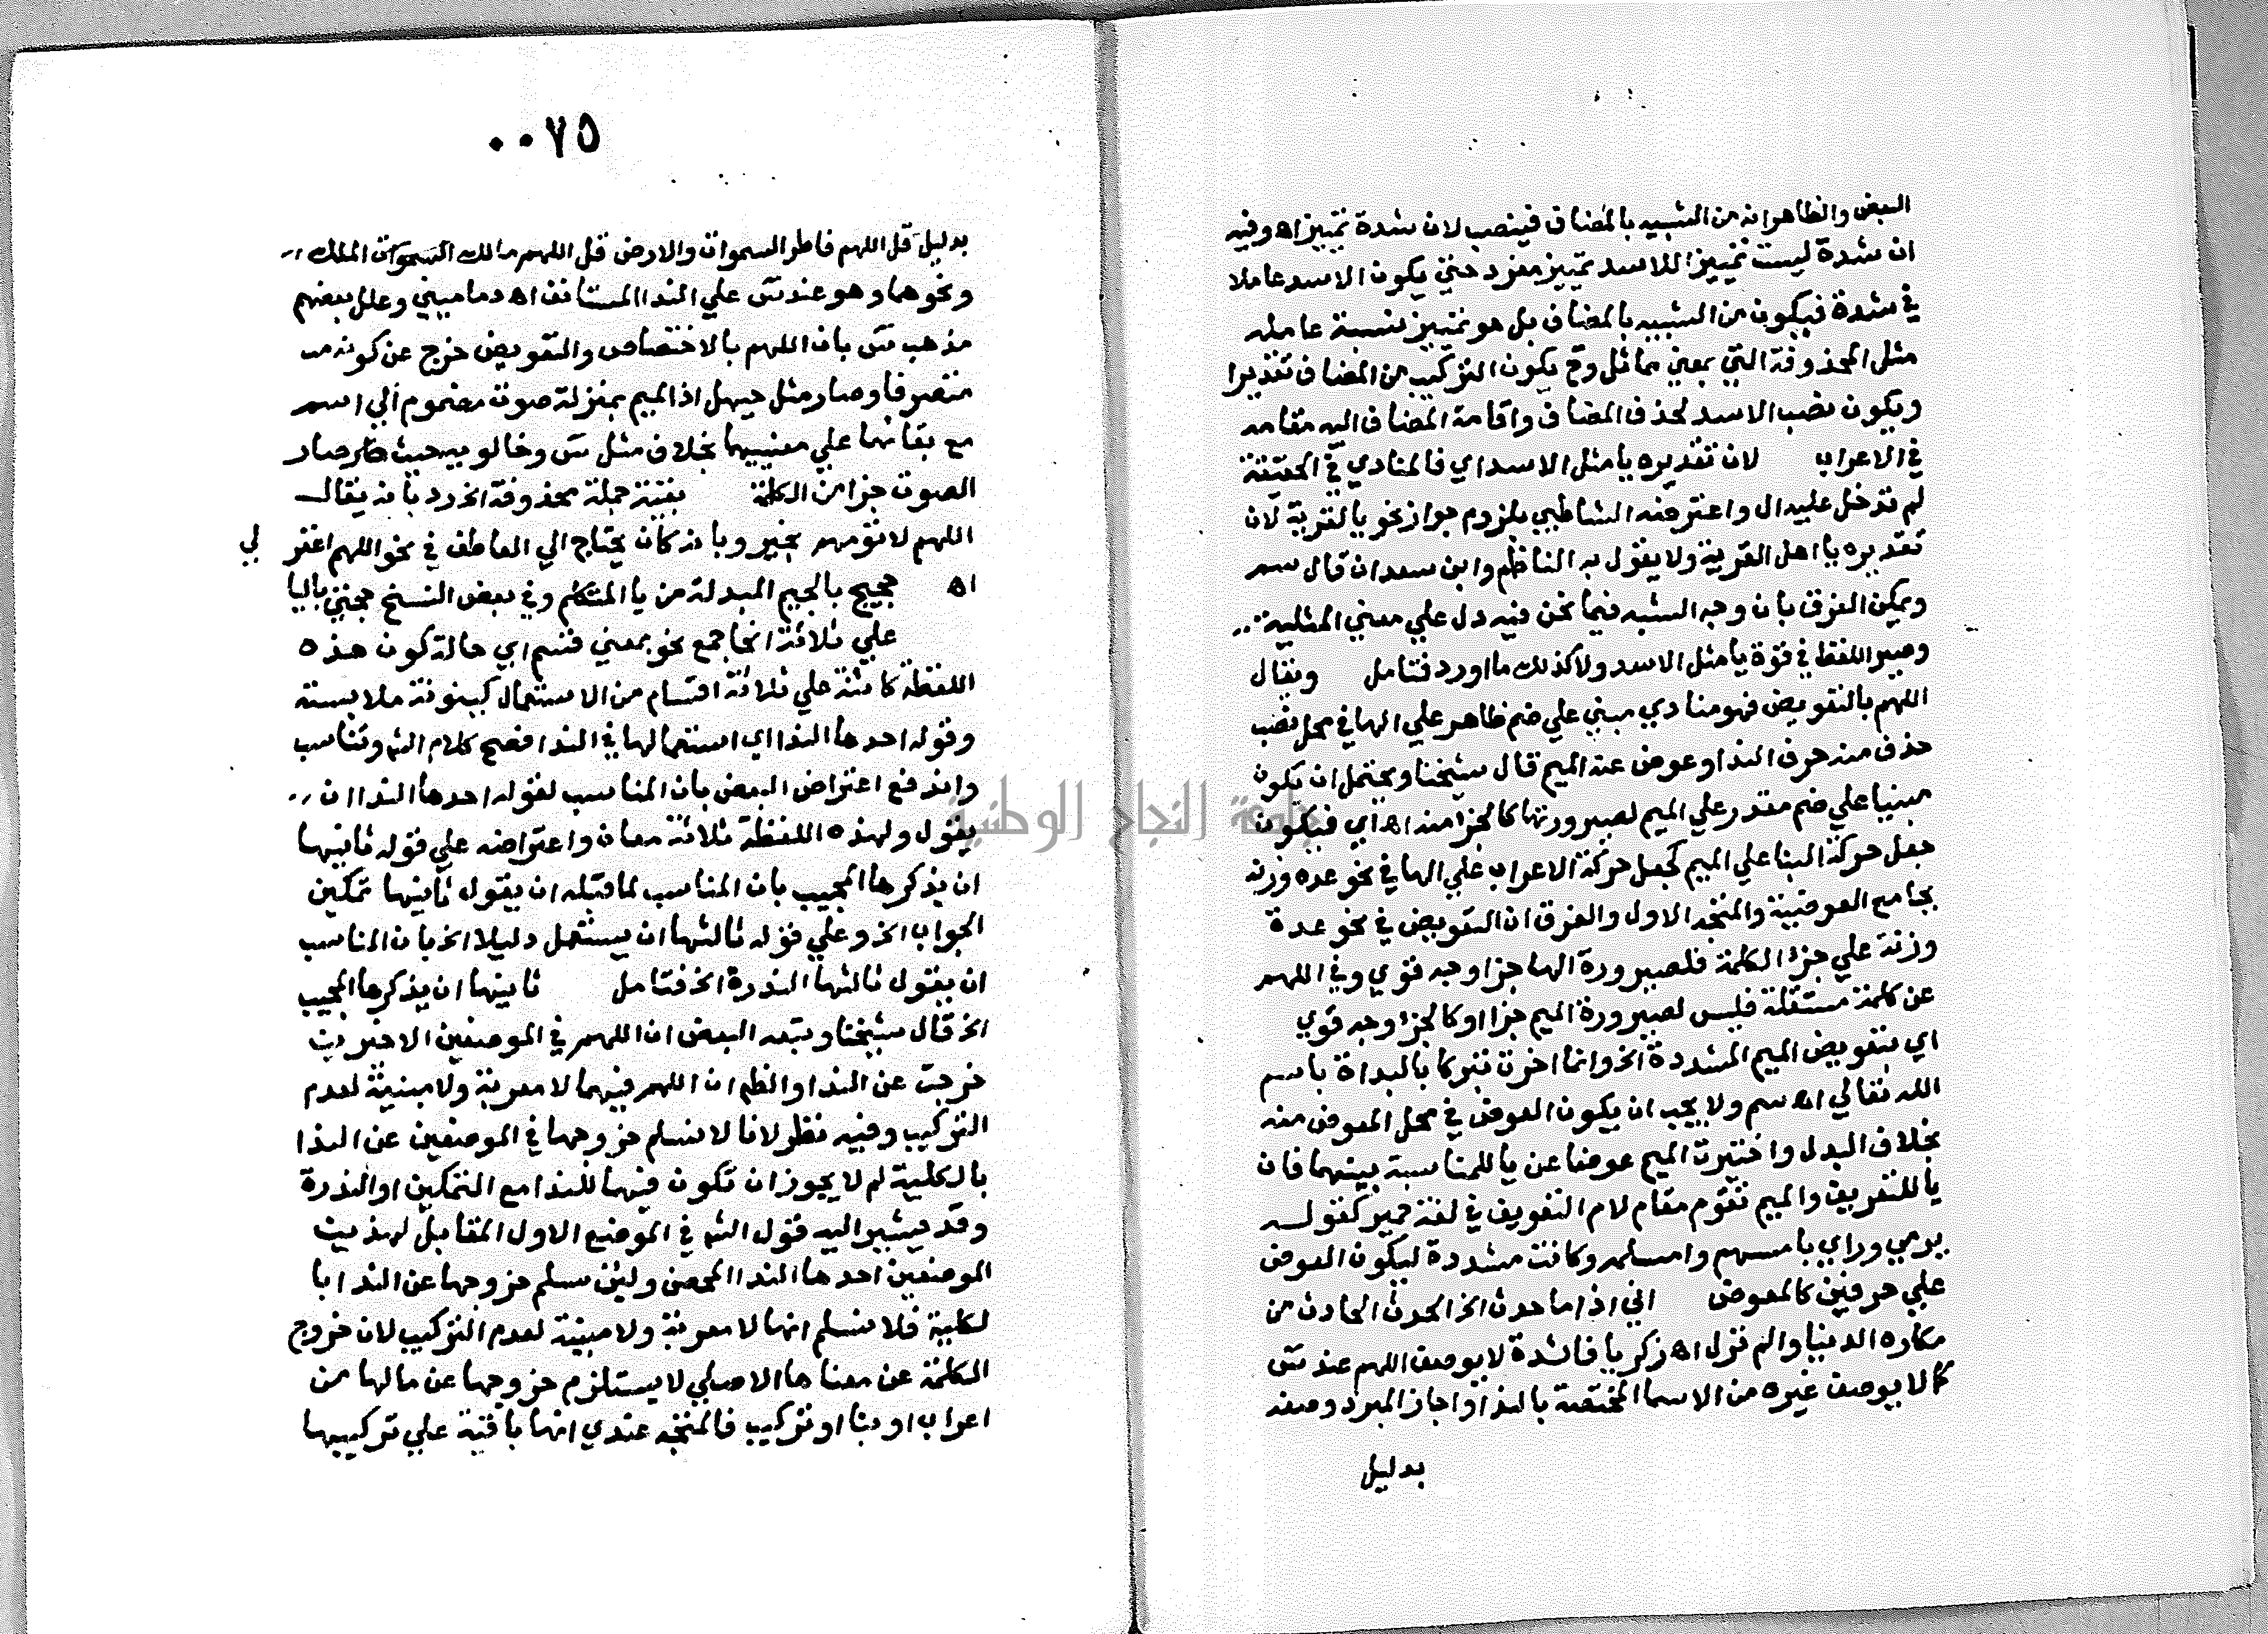 البعض والظاهر انه من الشبيه بالمضاف فينصب لان شدة تمييز اه وفيه
ان شدة ليست تمييزا للاسد تمييز مفرد حتي يكون الاسد عاملا
في شدة فيكون من الشبيه بالمضاف بل هو تمييز نسبة عامله
مثل المحذوفة التي بمعني مماثل وح يكون التركيب من المضاف تقديرا
ويكون نصب الاسد لحذف المضاف واقامة المضاف اليه مقامه
في الاعراب لان تقديره يا مثل الاسد اي فالمنادي في الحقيقة
لم تدخل عليه ال واعترضه الشاطبي بلزوم جواز نحو يا لقرية لان
تقديره يا اهل القرية ولا يقول به الناظم وابن سعدان قال سم
ويمكن الفرق بان وجه الشبه فيما نحن فيه دل علي معني المثلية
وصير اللفظ في قوة يا مثل الاسد ولا كذلك ما اورد فتامل ونقال
اللهم بالتعويض فهو منادي مبني علي ضم ظاهر علي الها في محل نصب
حذف منه حرف الندا وعوض عنه الميم قال شيخنا ويحتمل ان يكون
مبنيا علي ضم مقدر علي الميم لصيرورتها كالجزا منه اه اي فيكون
جعل حركة البنا علي الميم كجعل حركة الاعراب علي الها في نحو عدة وزنة
بجامع العوضية والمتجه الاول والفرق ان التعويض في نحو عدة
وزنة علي جزء الكلمة فلصيرورة الها جزا وجه قوي وفي اللهم
عن كلمة مستقلة فليس لصيرورة الميم جزا او كالجزء وجه قوي
اي بتعويض الميم المشددة الخ وانما اخرت تبركا بالبداة باسم
الله تعالي اه سم ولا يجب ان يكون العوض في محل المعوض منه
بخلاف البدل واختيرت الميم عوضا عن يا للمناسبة بينهما فان
يا للتعريف والميم تقوم مقام لام التعريف في لغة حمير كقوله
يرمي وراي بامسهم وامسلمه وكانت مشددة ليكون العوض
علي حرفين كالمعوض اني اذا ما حدث الخ الحدث الحادث من
مكاره الدنيا والم نزل اه زكريا فائدة لا يوصف اللهم عند س
كما لا يوصف غيره من الاسما المختصة بالندا واجاز المبرد وصفه
بدليل
٠٠٧٥
بدليل قل اللهم فاطر السموات والارض قل اللهم مالك السموات الملك
ونحوهما وهو عند س علي الندا المستانف اه دماميني وعلل بعضهم
مذهب س بان اللهم بالاختصاص والتعويض خرج عن كونه
متصرفا وصار مثل حيهل اذ الميم بمنزلة صوت مضموم الي اسم
مع بقائهما علي معنييهما بخلاف مثل س وخالويه حيث صار
الصوت جزا من الكلمة بقية جملة محذوفة الخ رد بانه يقال
اللهم لا تؤمهم بخير وبانه كان يحتاج الي العاطف في نحو اللهم اغفر لي
اه حجتج بالجيم المبدلة من يا المتكلم وفي بعض النسخ حجتي باليا
علي ثلاثة انحا جمع نحو بمعني قسم اي حالة كون هذه
اللفظة كائنة علي ثلاثة اقسام من الاستعمال كينونة ملابسة
وقوله احدها الندا اي استعمالها في الندا فصح كلام الش وتناسب
واندفع اعتراض البعض بان المناسب لقوله احدها الندا ان
يقول ولهذه اللفظة ثلاثة معان واعتراضه علي قوله ثانيها
ان يذكرها المجيب بان المناسب لما قبله ان يقول ثانيها تمكين
الجواب الخ وعلي قوله ثالثها ان يستعمل دليلا الخ بان المناسب
ان يقول ثالثها الندرة الخ فتامل ثانيها ان يذكرها المجيب
الخ قال شيخنا وتبعه البعض ان اللهم في الموضعين الاخيرين
خرجت عن الندا والظم ان اللهم فيهما لا معربة ولا مبنية لعدم
التركيب وفيه نظر لانا لا نسلم خروجها في الموضعين عن الندا
بالكلية لم لا يجوز ان تكون فيهما للندا مع التمكين او الندرة
وقد يشير اليه قول الش في الموضع الاول المقابل لهذين
الموضعين احدها الندا المحض ولئن سلم خروجها عن الندا با
لكلية فلا نسلم انها لا معربة ولا مبنية لعدم التركيب لان خروج
الكلمة عن معناها الاصلي لا يستلزم خروجها عن مالها من
اعراب او بنا او تركيب فالمتجه عندي انها باقية علي تركيبها
جامعة النجاح الوطنية